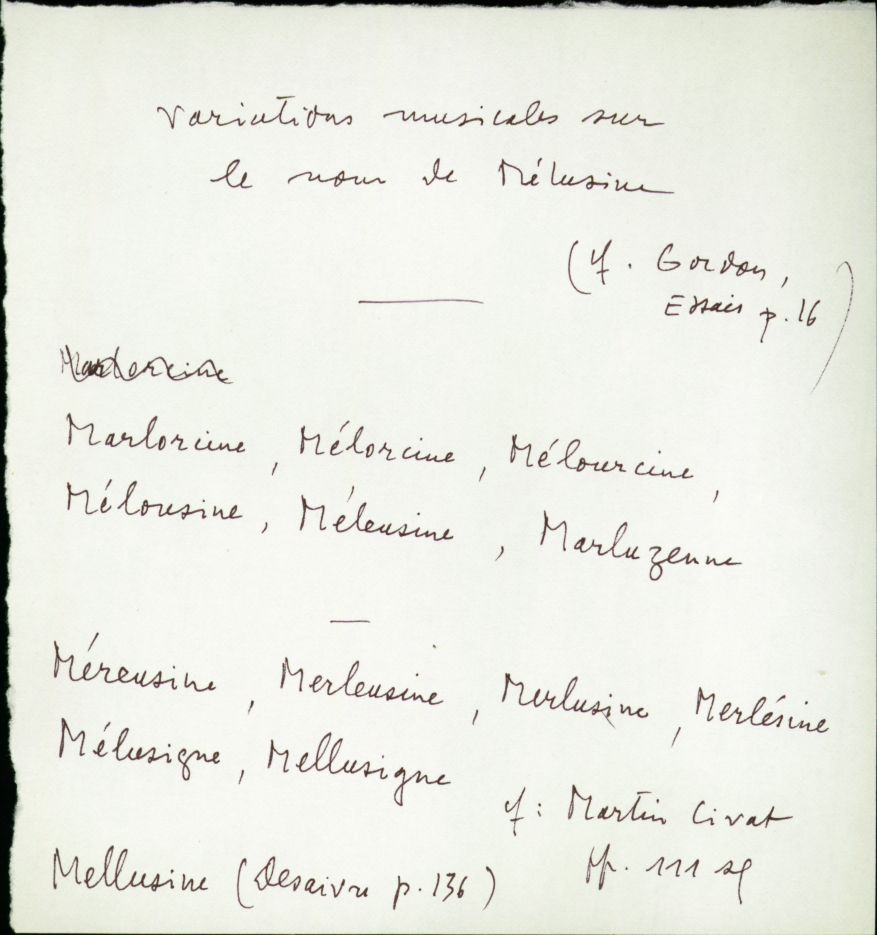 Variations musicales sur
le nom de Mélusine
(cf. Gordon,
Essais p.16)
Marlorcine, Mélorcine, Mélourcine,
Mélousine, Méleusine, Marluzenne
Méreusine, Merleusine, Merlusine, Merlésine
Mélusigne, Mellusigne
cf: Martin Civat
pp. 111 sq
Mellusine (Desaivre p.136)